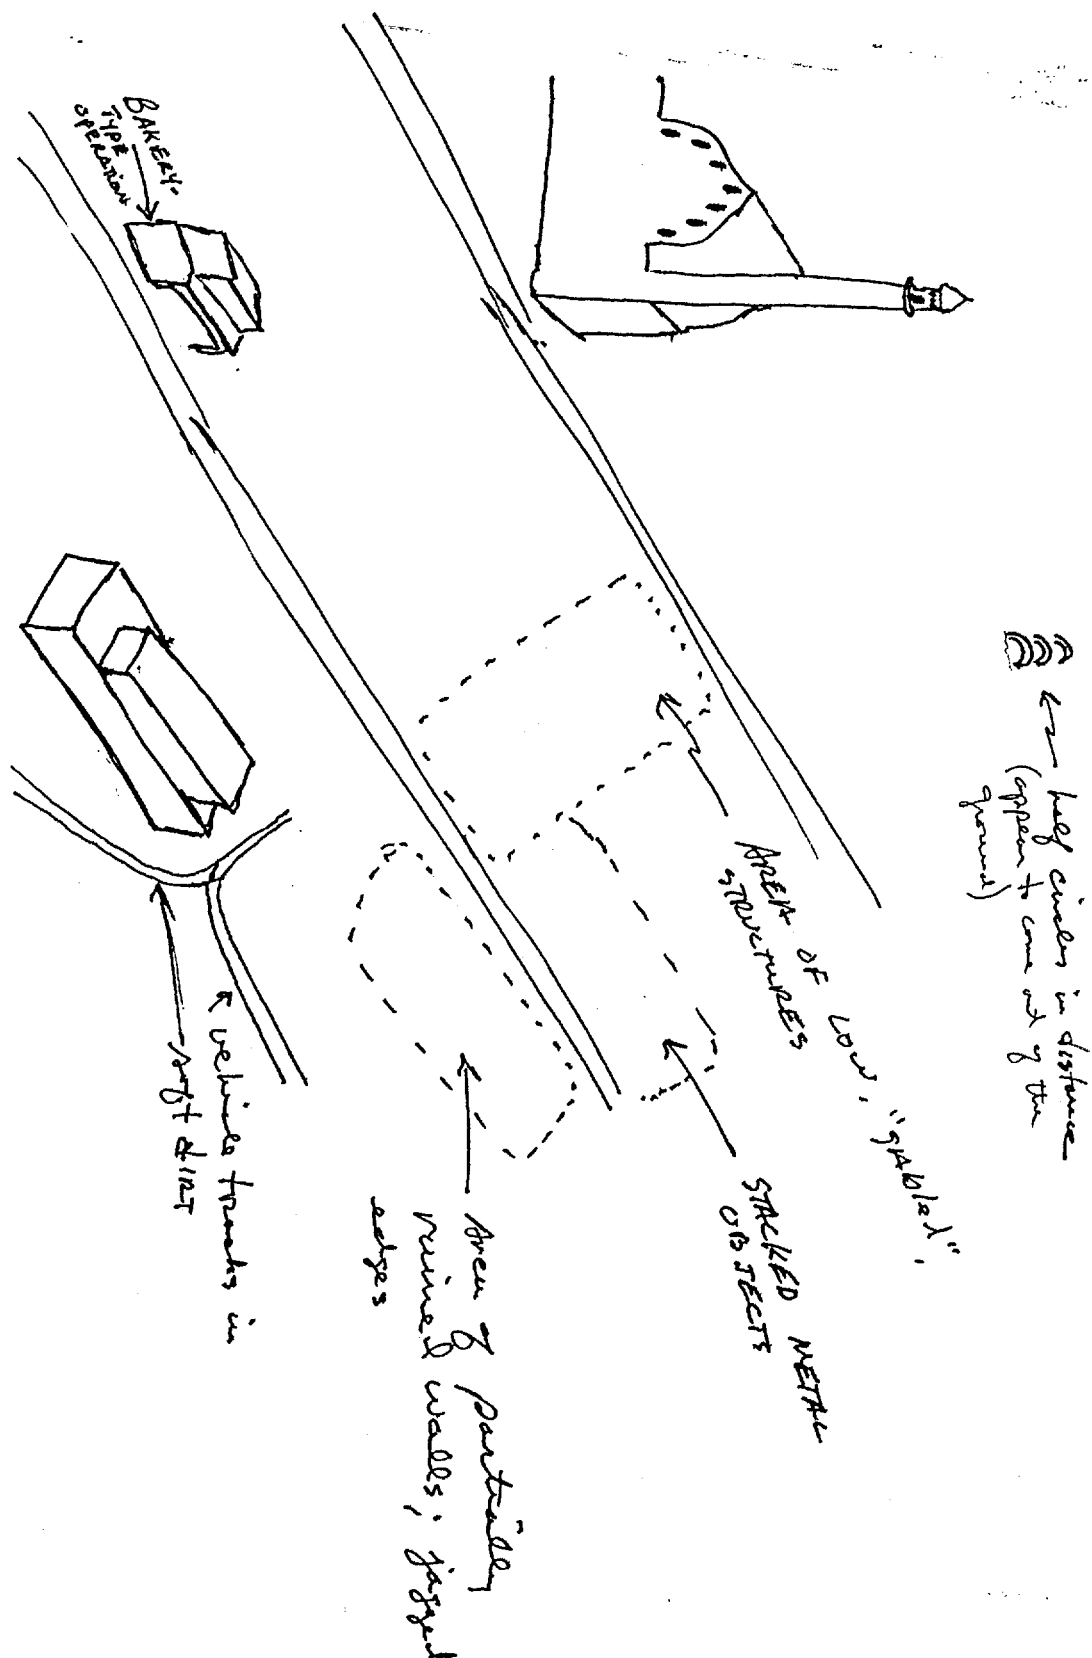 BAKERY-
TYPE
OPERATION
half circles in distance
(appear to come out of the
ground)
AREA OF LOW, "gabled",
STRUCTURES
STACKED METAL
OBJECTS
Area of partially
ruined walls; jagged
edges
vehicle tracks in
soft dirt